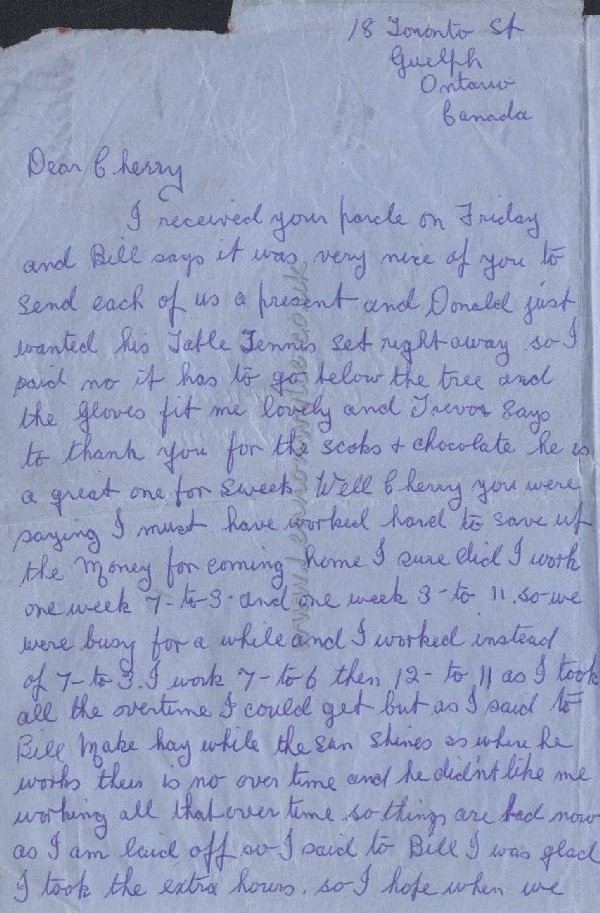 18 Toronto St
Guelph
Ontario
Canada
Dear Cherry
I received your parcle on Friday
and Bill says it was very nice of you to
send each of us a present and Donald just
wanted his Table Tennis set right away so I
said no it has to go below the tree and
the gloves fit me lovely and Trevor says
to thank you for the scoks + chocolate he is
a great one for sweets. Well Cherry you were
saying I must have worked hard to save up
the money for coming home I sure did I work
one week 7-to-3. and one week 3-to 11. so we
were busy for a while and I worked instead
of 7-to 3. I work 7-to-6 then 12-to 11 as I took
all the overtime I could get but as I said to
Bill Make hay while the sun shines as where he
works their is no over time and he didn't like me
working all that over time so things are bad now
as I am laid off so I said to Bill I was glad
I took the extra hours. so I hope when we